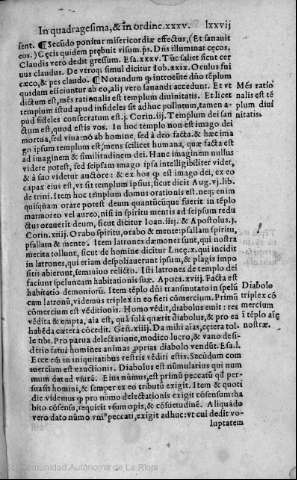 In quadragesima, & in ordine. xxxv. lxxvij
sent. ¶ Secūdo ponitur misericordiæ effectus, (Et sanauit
eos.) Cęcis quidem prębuit visum. ps. Dñs illuminat cęcos.
Claudis vero dedit gressum. Esa. xxxv. Tūc saliet sicut cer
uus claudus. De vtroq; simul dicitur Iob. xxix. Oculus fui
cæco, & pes claudo. ¶ Notandum q̊ introeūte dño tēplum
quidam eiiciuntur ab eo, alij vero sanandi accedunt. Et vt
dictum est, mēs rationalis est templum diuinitatis. Et licet
templum istud apud infideles sit adhuc pollutum, tamen a-
pud fideles consecratum est. j. Corin. iij. Templum dei san
ctum est, quod estis vos. In hoc templo non est imago dei
mortua, sed viua: nō ab homine, sed a deo facta. & hæc ima
go ipsum templum est: mens scilicet humana, quæ facta est
ad imaginem & similitudinem dei. Hanc imaginem nullus
videre potest, sed seipsam imago ipsa intelligibiliter videt,
& à suo videtur auctore: & ex hoc q̊ est imago dei, ex eo
capax eius est, vt sit templum ipsius, sicut dicit Aug. vj. lib.
de trini. Item hoc templum domus orationis est. neq; enim
quisq̃uam orare potest deum quantūcūque fuerit in tēplo
marmoreo vel aureo, nisi in spiritu mentis ad seipsum redu
ctus orauerit deum, sicut dicitur Ioan. iiij. & Apostolus. j.
Corin. xiiij. Orabo spiritu, orabo & mente: psallam spiritu,
psallam & mente. Item latrones dæmones sunt, qui nostra
merita tollunt, sicut de homine dicitur Luc. x. qui incidit
in latrones, qui etiam despoliauerunt ipsum, & plagis impo
sitis abierunt, semiuiuo relicto. Isti latrones de templo dei
faciunt speluncam habitationis suæ. Apoca. xviij. Facta est
habitatio demoniorū.
cam latronū, videmus triplex in eo fieri cōmercium. Primū
cōmercium est vēditionis. Homo vēdit, diabolus emit: res
vēdita & empta, aīa est, quā solā quærit diabolus, & pro ea
habēda cætera cōcedit. Gen. xiiij. Da mihi aīas, cętera tol-
le tibi. Pro parua delectatione, modico lucro, & vano desi-
derio fatui homines animas proprias diabolo vendūt. Esa. l.
Ecce eñ in iniquitatibus vestris vēditi estis. Secūdum com
mercium est exactionis. Diabolus est nūmularius qui num
mum dat ad vsurā. Eius nūmus, est primū peccatū q̊d per-
suasit homini, & semper ex eo tributū exigit. Item & quoti
die videmus q̊ pro nūmo delectationis exigit cōsensum: ha
bito cōsensu, requirit vsum opis, & cōsuetudinē. Aliquādo
vero dato nūmo vniˢ peccati, exigit adhuc: vt cui dedit vo-
luptatem
Mēs ratio
nalis est tē
plum diui
nitatis.
Diabolo
triplex cō
mercium
ī tēplo aīę
nostræ.
Comunidad Autónoma de La Rioja